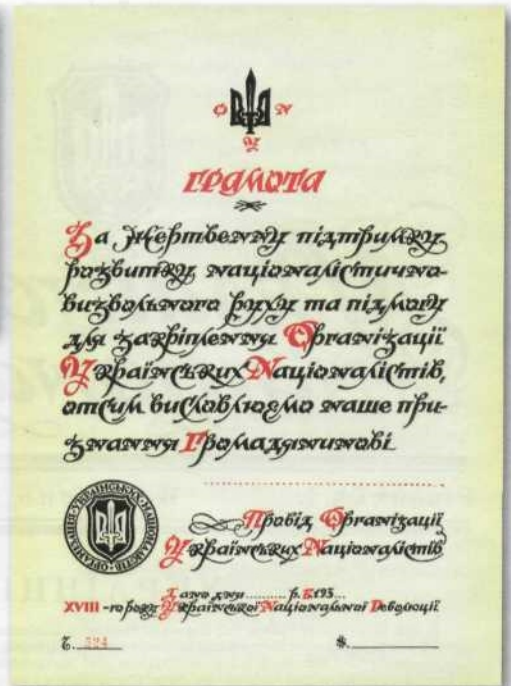 О У Н
ГРАМОТА
За Жертвенну підтримку
розвитку націоналістично-
визвольного руху та підмогу
для закріплення Організації
Українських Націоналістів,
отсим висловлюємо наше при-
знання Громадянинові
ОРГАНІЗАЦІЯ УКРАЇНСЬКИХ НАЦІОНАЛІСТІВ
Провід Організації
Українських Націоналістів
Дано дня .......... р. Б. 193...
XVIII -го року Української Національної Революції
Ч. 324
$.